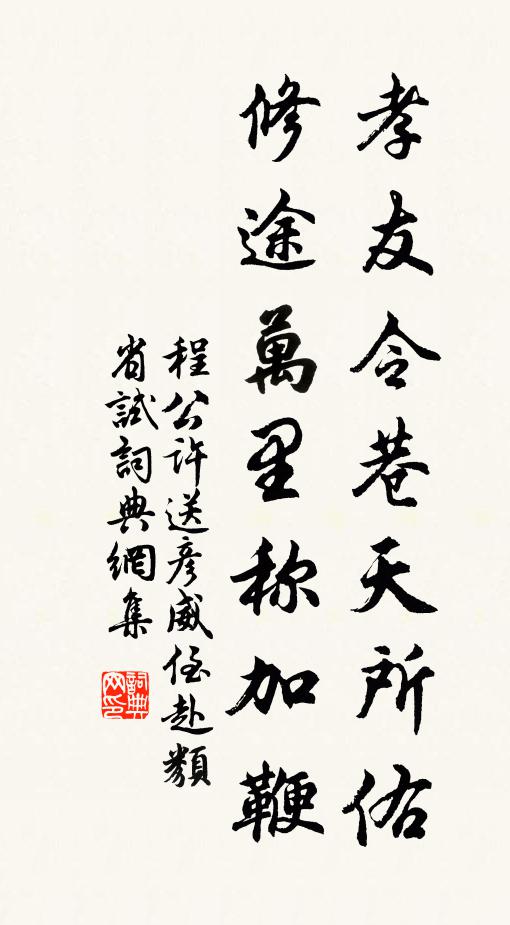 孝友令巷天所佑
修途萬里称加鞭
程公許送彦威侄赴類
省試詞典網集
詞典网印